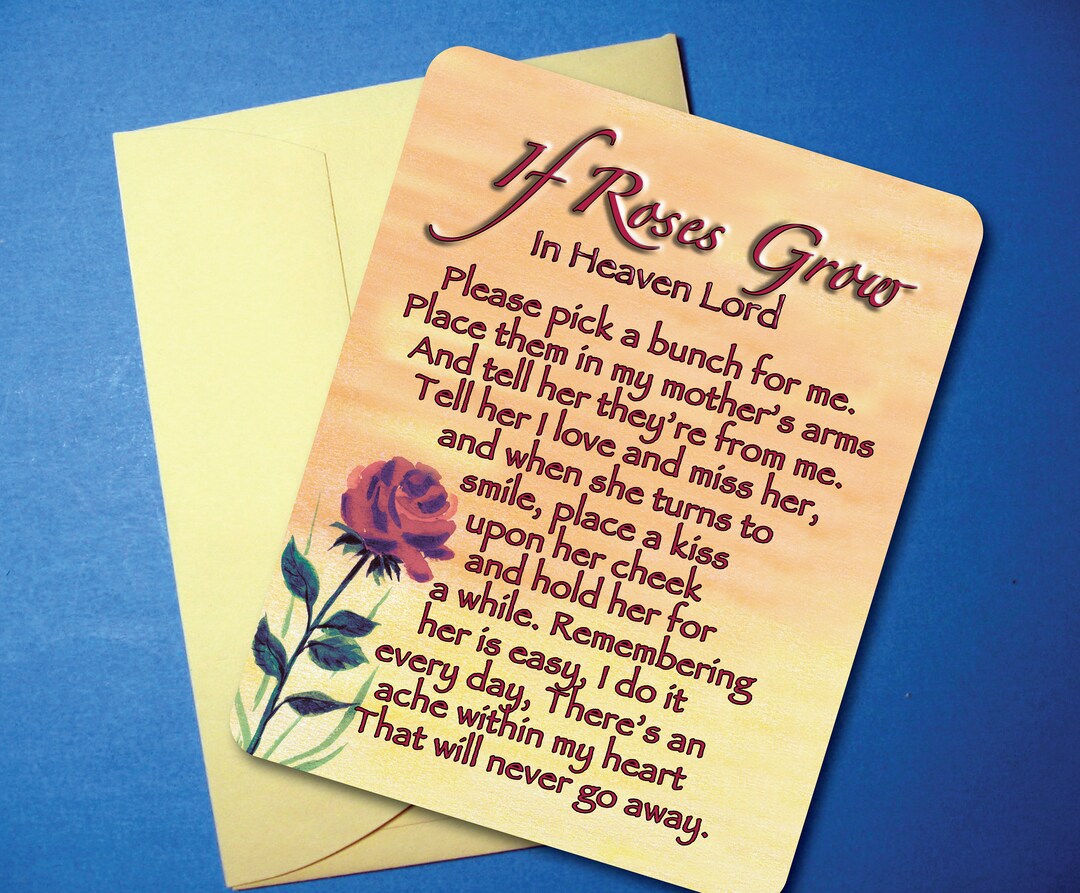 If Roses Grow
In Heaven Lord
Please pick a bunch for me.
Place them in my mother's arms
And tell her they're from me.
Tell her I love and miss her,
and when she turns to
smile, place a kiss
upon her cheek
and hold her for
a while. Remembering
her is easy, I do it
every day, There's an
ache within my heart
That will never go away.